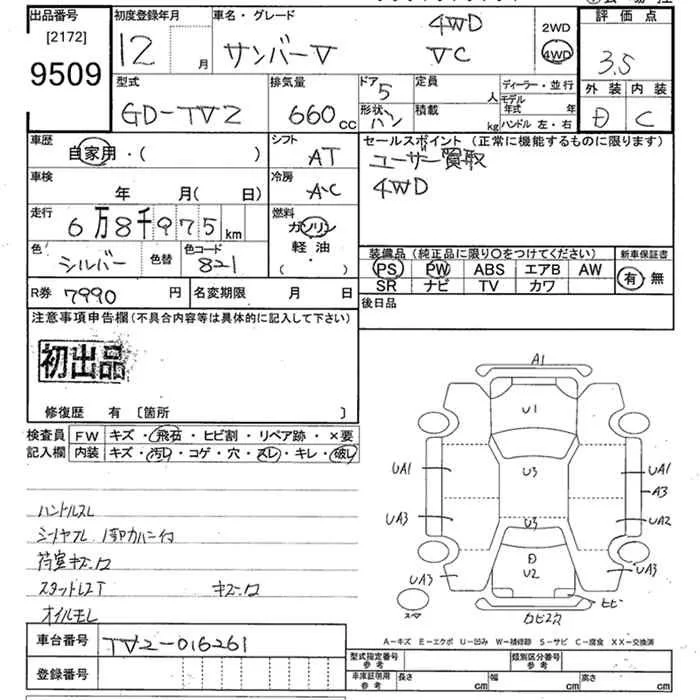 出品番号
[2172]
9509
初度登録年月
12 月
車名・グレード
サンバーV
4WD
VC
2WD
4WD
評価点
3.5
外装 内装
D C
型式
GD-TV2
排気量
660cc
ドア
5
形状
バン
定員
人
積載
kg
ディーラー・並行
モデル年式 年
ハンドル 左・右
車歴
自家用・( )
シフト
AT
セールスポイント (正常に機能するものに限ります)
ユーザー買取
4WD
車検
年 月( 日)
冷房
A・C
走行
6万8千975km
燃料
ガソリン
軽油
( ・ )
色
シルバー
色替
色コード
821
装備品(純正品に限り○をつけてください)
PS PW ABS エアB AW
SR ナビ TV カワ
新車保証書
有・無
R券 7990円
名変期限 月 日
後日品
注意事項申告欄(不具合内容等は具体的に記入して下さい)
初出品
修復歴 有 [箇所 ]
検査員
記入欄
FW キズ・飛石・ヒビ割・リペア跡・×要
内装 キズ・汚レ・コゲ・穴・スレ・キレ・破レ
ハンドルスレ
オイルモレ
A1
U1
UA1
U3
UA1
A3
UA3
U3
UA2
D
U2
UA3
UA3
ヒビ
スマ
A-キズ E-エクボ U-凹み W-補修跡 S-サビ C-腐食 XX-交換済
車台番号
TV2-016261
登録番号
型式指定番号
参考
類別区分番号
参考
車庫証明用
参考
長さ cm 幅 cm 高さ cm